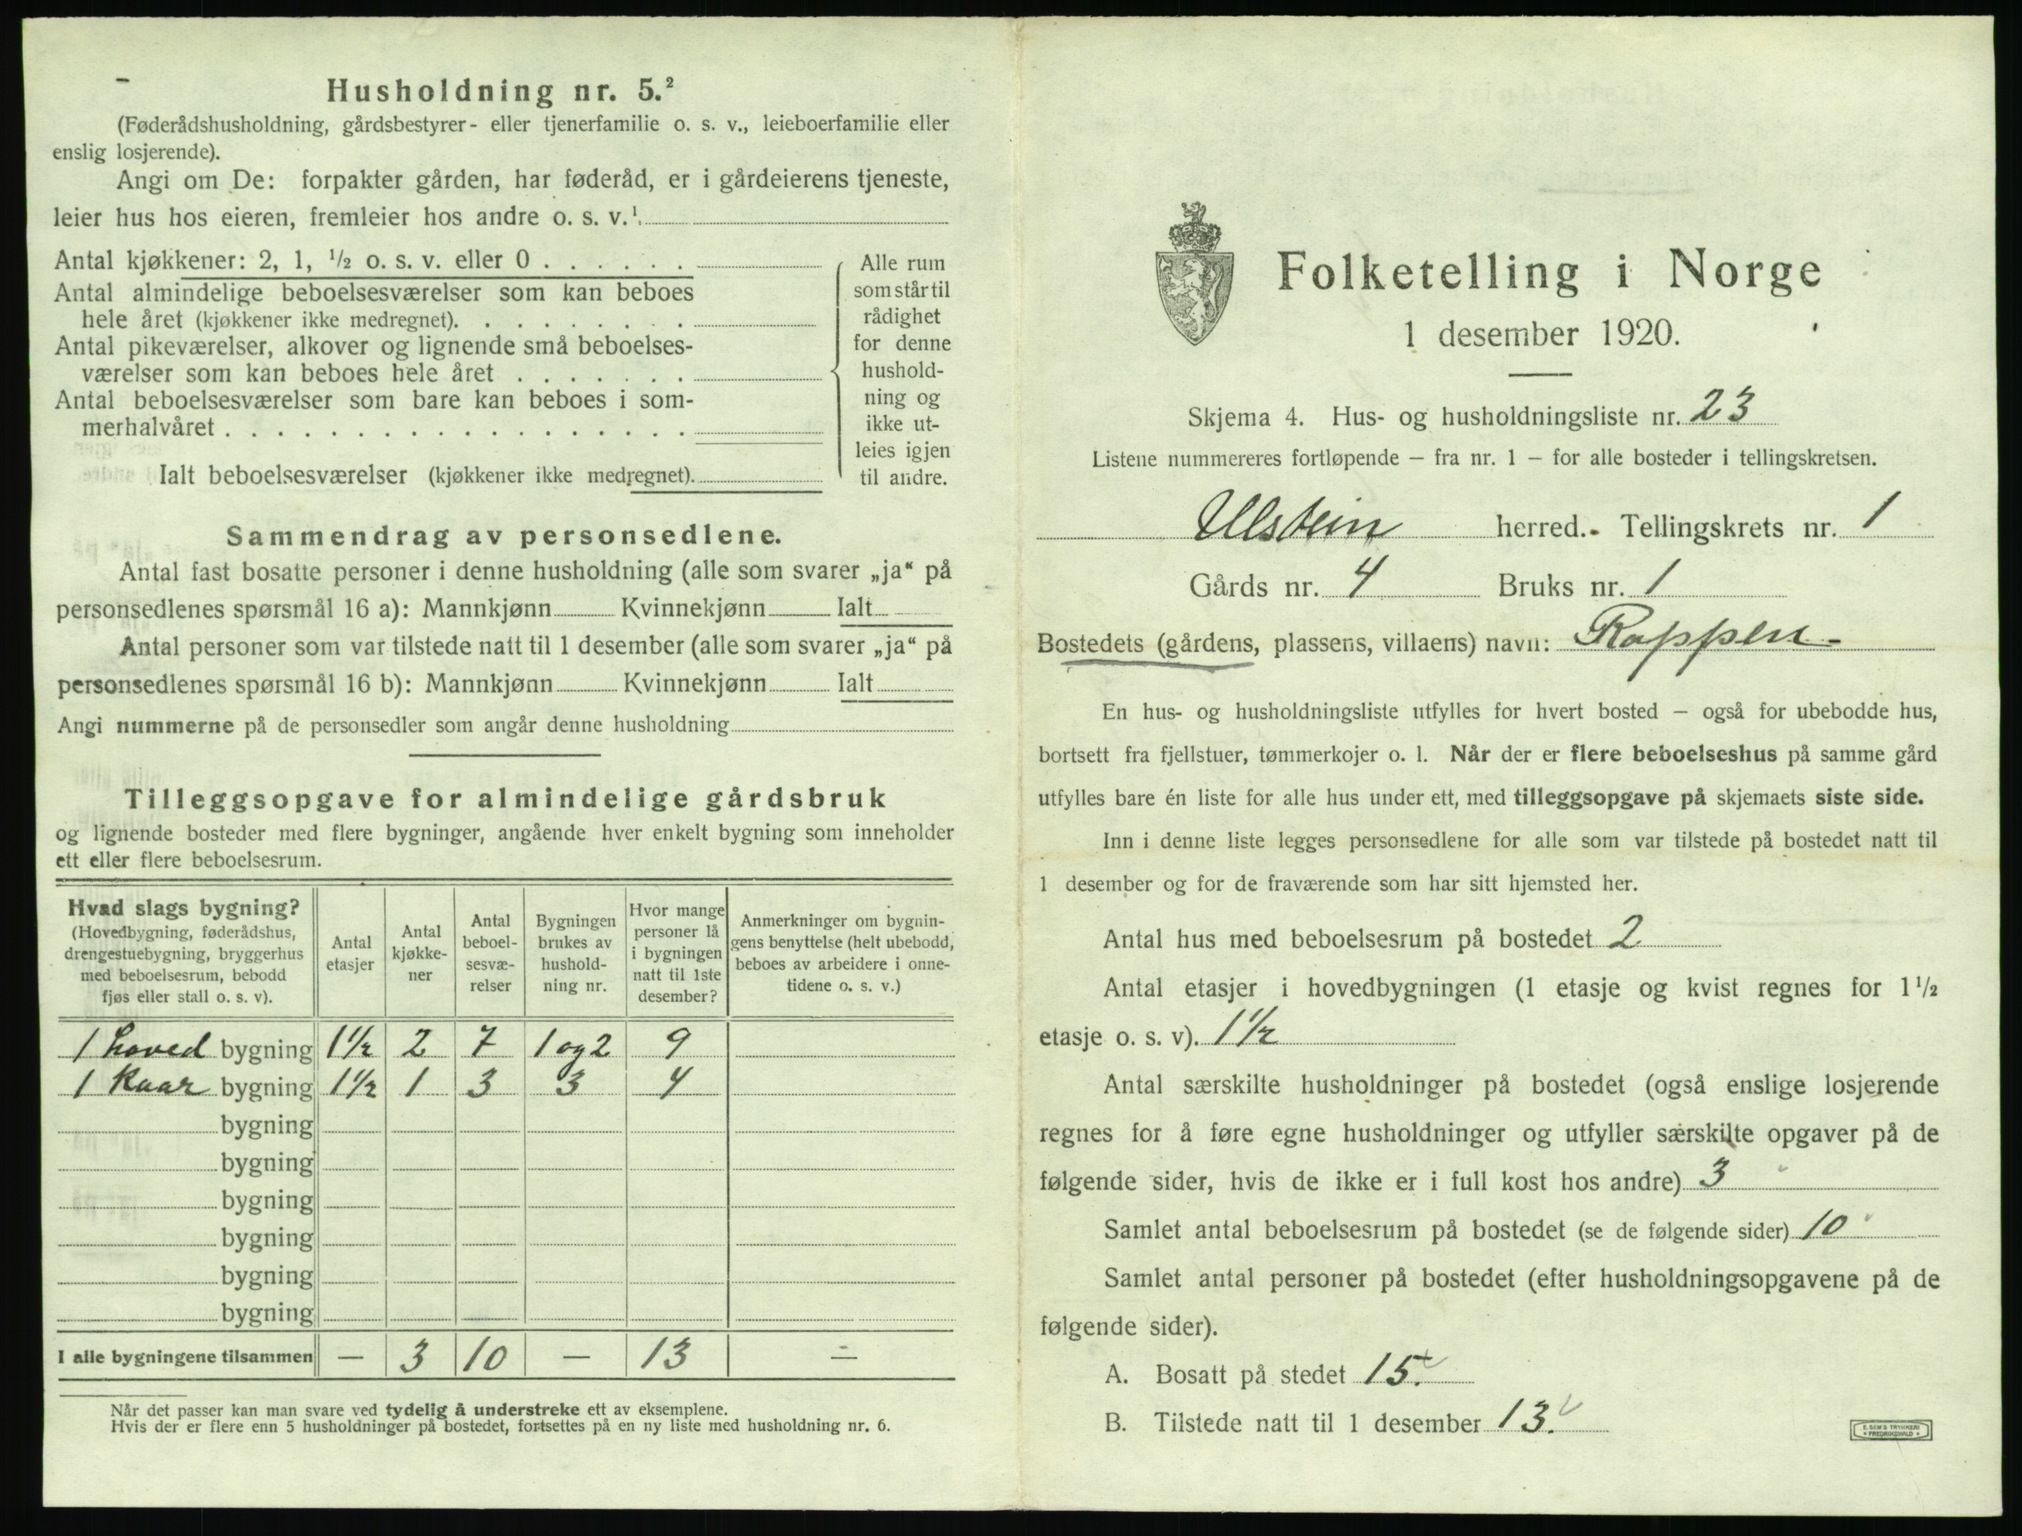 Husholdning nr. 5.²
(Føderådshusholdning, gårdsbestyrer- eller tjenerfamilie o. s. v., leieboerfamilie eller
enslig losjerende).
Angi om De: forpakter gården, har føderåd, er i gårdeierens tjeneste,
leier hus hos eieren, fremleier hos andre o. s. v.¹
Antal kjøkkener: 2, 1, ½ o. s. v. eller 0
Antal almindelige beboelsesværelser som kan beboes
hele året (kjøkkener ikke medregnet).
Antal pikeværelser, alkover og lignende små beboelses-
værelser som kan beboes hele året
Antal beboelsesværelser som bare kan beboes i som-
merhalvåret
Ialt beboelsesværelser (kjøkkener ikke medregnet).
Alle rum
som står til
rådighet
for denne
hushold-
ning og
ikke ut-
leies igjen
til andre.
Sammendrag av personsedlene.
Antal fast bosatte personer i denne husholdning (alle som svarer „ja“ på
personsedlenes spørsmål 16 a): Mannkjønn Kvinnekjønn Ialt
Antal personer som var tilstede natt til 1 desember (alle som svarer „ja“ på
personsedlenes spørsmål 16 b): Mannkjønn Kvinnekjønn Ialt
Angi nummerne på de personsedler som angår denne husholdning
Tilleggsopgave for almindelige gårdsbruk
og lignende bosteder med flere bygninger, angående hver enkelt bygning som inneholder
ett eller flere beboelsesrum.
Hvad slags bygning?
(Hovedbygning, føderådshus,
drengestuebygning, bryggerhus
med beboelsesrum, bebodd
fjøs eller stall o. s. v).
Antal
etasjer
Antal
kjøkke-
ner
Antal
beboel-
sesvæ-
relser
Bygningen
brukes av
hushold-
ning nr.
Hvor mange
personer lå
i bygningen
natt til 1ste
desember?
Anmerkninger om bygnin-
gens benyttelse (helt ubebodd,
beboes av arbeidere i onne-
tidene o. s. v.)
1 hoved bygning 1½ 2 7 1 og 2 9
1 kaar bygning 1½ 1 3 3 4
bygning
bygning
bygning
bygning
bygning
bygning
I alle bygningene tilsammen — 3 10 — 13 —
Når det passer kan man svare ved tydelig å understreke ett av eksemplene.
Hvis der er flere enn 5 husholdninger på bostedet, fortsettes på en ny liste med husholdning nr. 6.
Folketelling i Norge
1 desember 1920.
Skjema 4. Hus- og husholdningsliste nr. 23
Listene nummereres fortløpende – fra nr. 1 – for alle bosteder i tellingskretsen.
Ulstein herred. Tellingskrets nr. 1
Gårds nr. 4 Bruks nr. 1
Bostedets (gårdens, plassens, villaens) navn: Roppen
En hus- og husholdningsliste utfylles for hvert bosted – også for ubebodde hus,
bortsett fra fjellstuer, tømmerkojer o. l. Når der er flere beboelseshus på samme gård
utfylles bare én liste for alle hus under ett, med tilleggsopgave på skjemaets siste side.
Inn i denne liste legges personsedlene for alle som var tilstede på bostedet natt til
1 desember og for de fraværende som har sitt hjemsted her.
Antal hus med beboelsesrum på bostedet 2
Antal etasjer i hovedbygningen (1 etasje og kvist regnes for 1 ½
etasje o. s. v). 1½
Antal særskilte husholdninger på bostedet (også enslige losjerende
regnes for å føre egne husholdninger og utfyller særskilte opgaver på de
følgende sider, hvis de ikke er i full kost hos andre) 3
Samlet antal beboelsesrum på bostedet (se de følgende sider) 10
Samlet antal personer på bostedet (efter husholdningsopgavene på de
følgende sider).
A. Bosatt på stedet 15.
B. Tilstede natt til 1 desember 13.
E. SEM'S TRYKKERI
FREDRIKSHALD